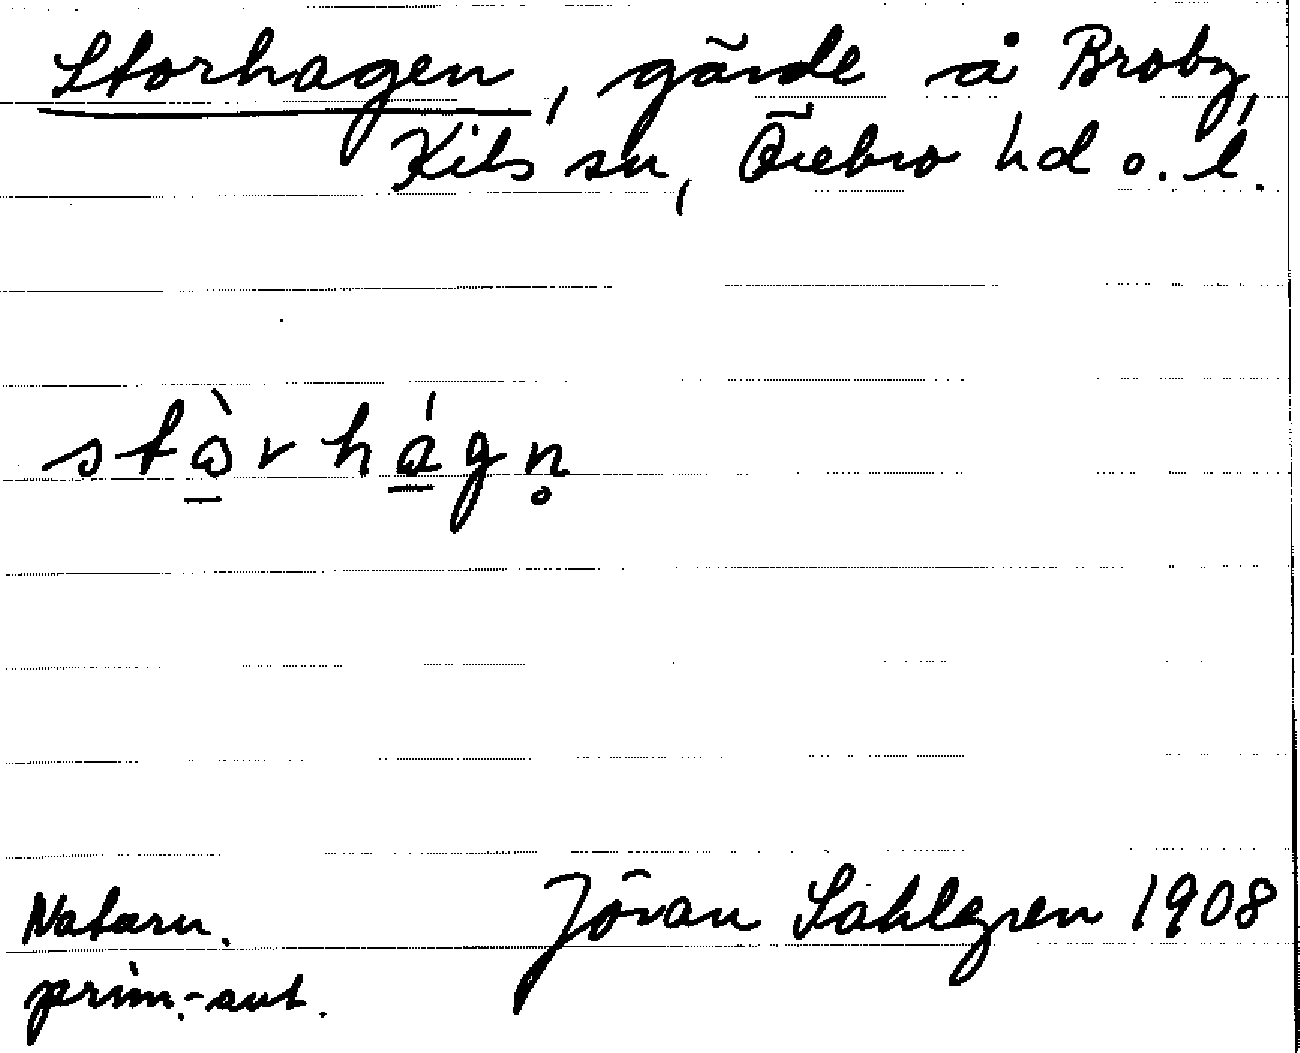 Storhagen, gärde å Broby,
Kils sn, Örebro hd o. l.
stå̀rhágn̥
Naturn.
prim.-ant.
Jöran Sahlgren 1908